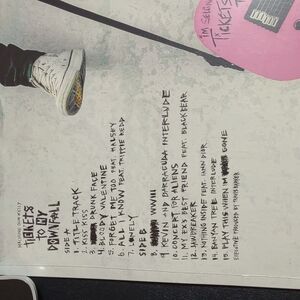 I'M SELLING
TICKETS
MACHINE GUN KELLY
TICKETS
TO MY
DOWNFALL
SIDE A
1. TITLE TRACK
2. KISS KISS
3. DRUNK FACE
4. BLOODY VALENTINE
5. FORGET ME TOO FEAT. HALSEY
6. ALL I KNOW FEAT. TRIPPIE REDD
7. LONELY
SIDE B
8. WWIII
9. KEVIN AND BARRACUDA INTERLUDE
10. CONCERT FOR ALIENS
11. MY EX'S BEST FRIEND FEAT. BLACKBEAR
12. JAWBREAKER
13. NOTHING INSIDE FEAT. IANN DIOR
14. BANYAN TREE INTERLUDE
15. PLAY THIS WHEN I'M GONE
EXECUTIVE PRODUCED BY TRAVIS BARKER